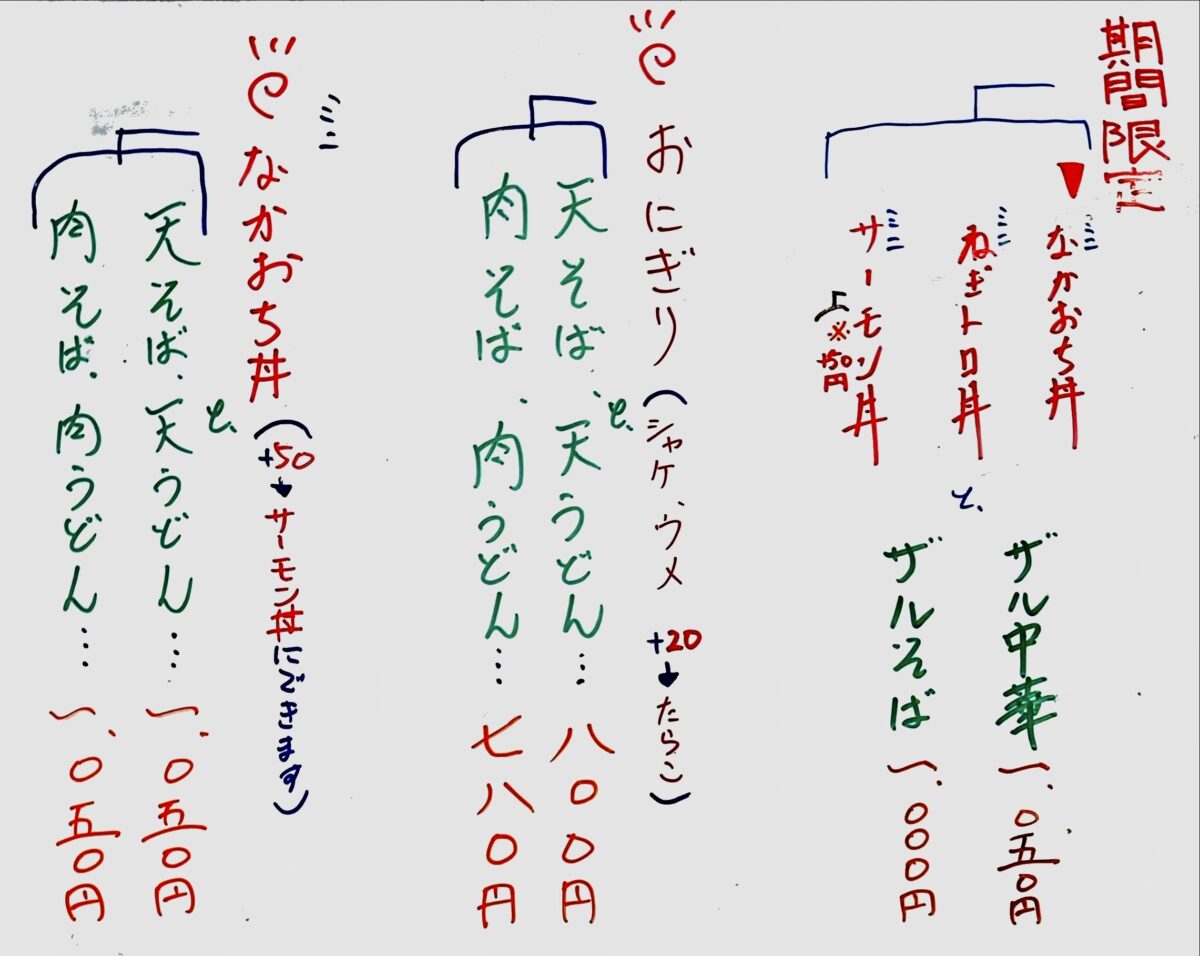 期間限定
ミニ なかおち丼
ミニ ねぎトロ丼
ミニ サーモン丼
※+50円
と、
ザル中華 一、〇五〇円
ザルそば 一、〇〇〇円
おにぎり(シャケ、ウメ +20→たらこ)
と、
天そば、天うどん… 八〇〇円
肉そば、肉うどん… 七八〇円
ミニ
なかおち丼(+50→サーモン丼にできます)
と、
天そば、天うどん… 一、〇五〇円
肉そば、肉うどん… 一、〇五〇円